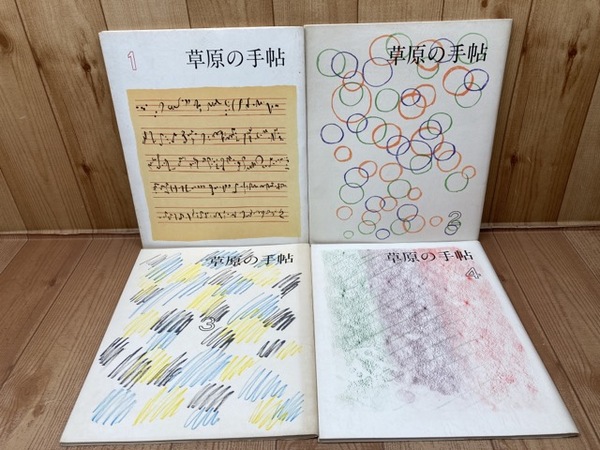 1
草原の手帖
草原の手帖
2
草原の手帖
3
草原の手帖
4